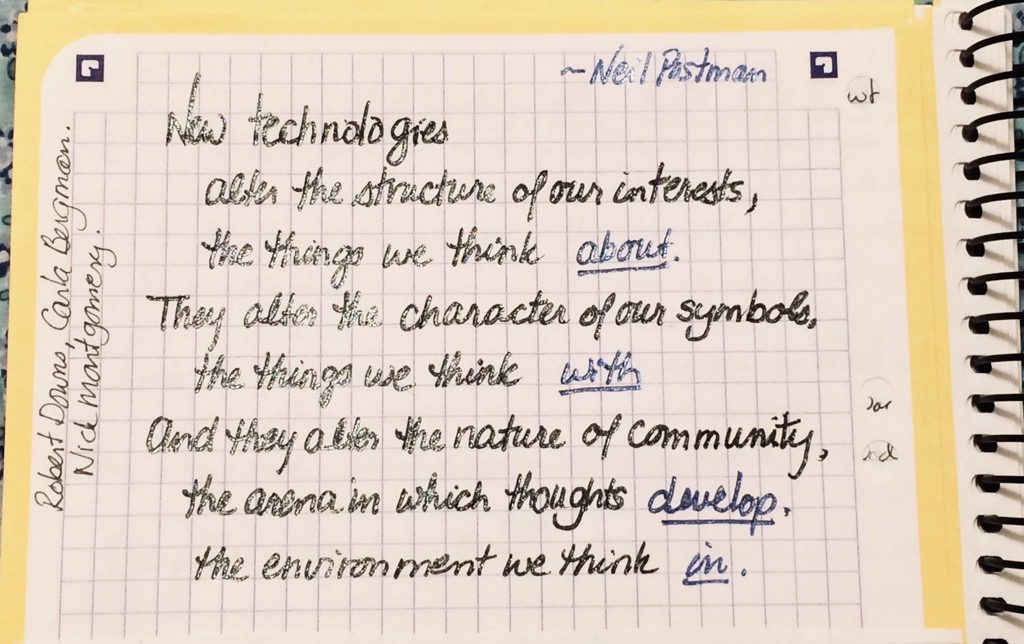 ~ Neil Postman
New technologies
alter the structure of our interests,
the things we think about.
They alter the character of our symbols,
the things we think with
And they alter the nature of community,
the arena in which thoughts develop.
the environment we think in.
Robert Downs, Carla Bergman.
Nick Montgomery.
wt
nd